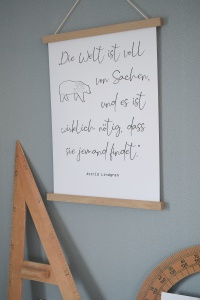 Die Welt ist voll
von Sachen,
und es ist
wirklich nötig, dass
sie jemand findet."
Astrid Lindgren